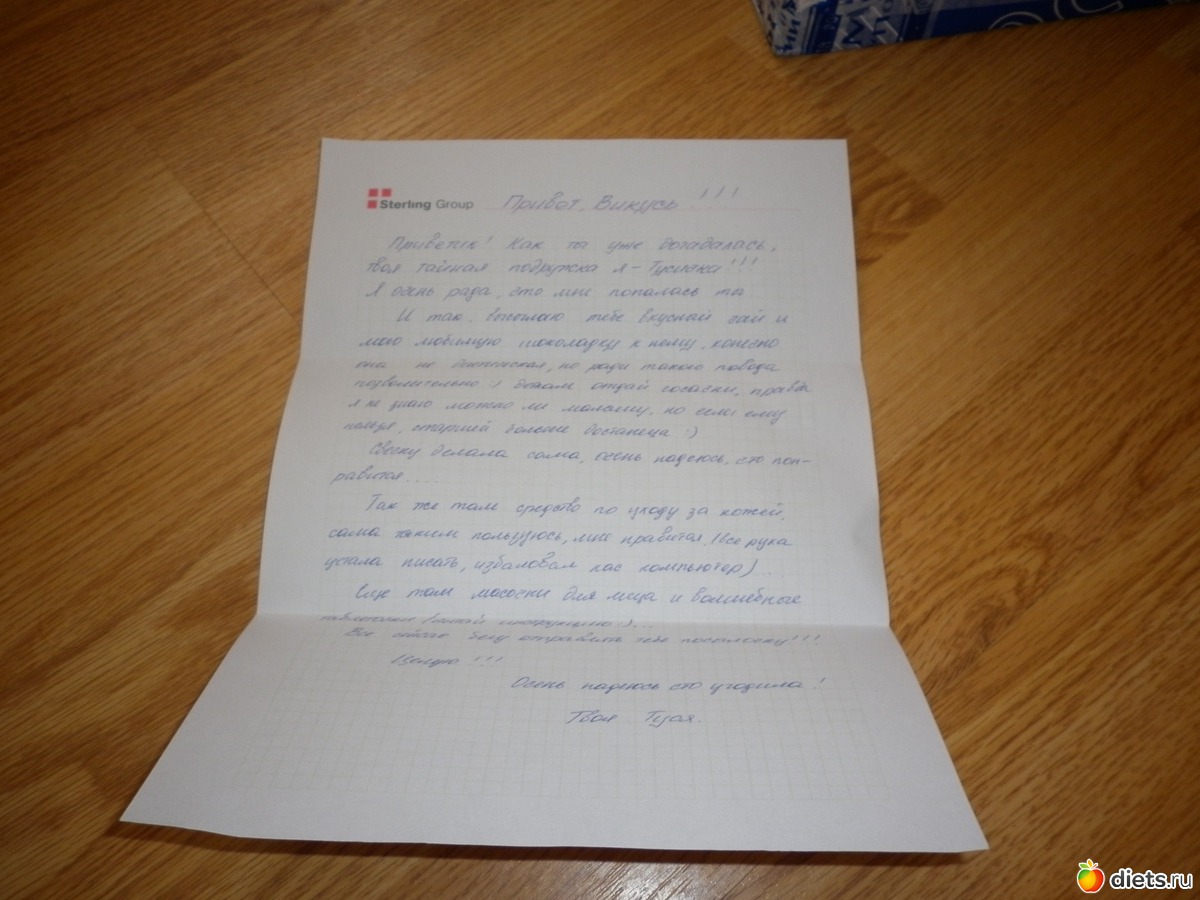 Sterling Group
Привет, Викусь!!!
Приветик! Как ты уже догадалась,
твоя тайная подружка я -
Я очень рада, что мне попалась ты
И так, высылаю тебе вкусный чай и
мою любимую шоколадку к нему, конечно
она не диетическая, но ради такого повода
позволительно :) деткам отдай сосачки, правда
я не знаю можно ли малышу, но если ему
нельзя, старшей больше достанеца :)
Свечку делала сама, очень надеюсь, что пон-
равится....
Так же там средство по уходу за кожей,
сама таким пользуюсь, мне нравится, (все рука
устала писать, избаловал нас компьютер)...
Еще там масочки для лица и волшебные
таблеточки (читай инструкцию :)...
Все бегу отправлять тебе посылочку!!!
Целую!!!
Очень надеюсь что угодила!
Твоя
diets.ru